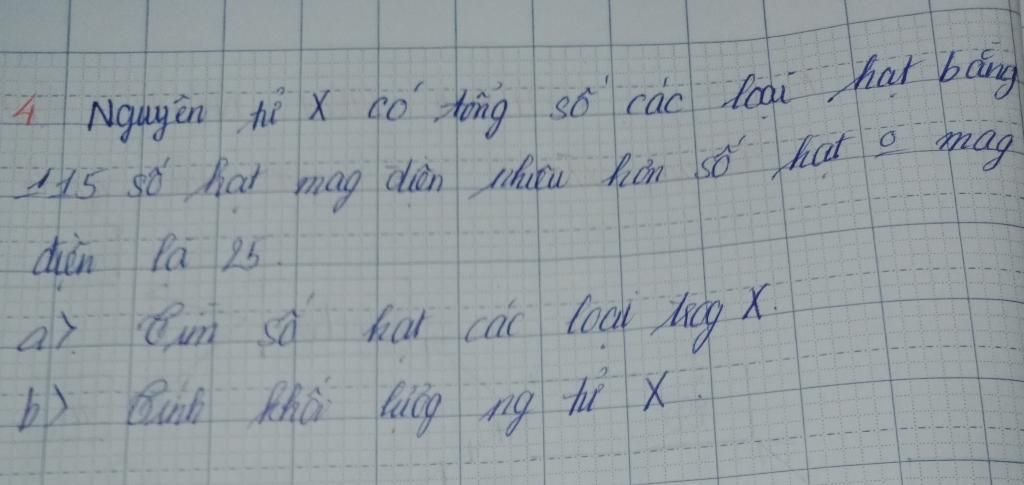 4 Nguyên tử X có tổng số các loại hạt bằng
115 số hạt mag điện nhiều hơn số hạt o mag
điện là 25.
a> Tìm số hạt các loại trog X.
b> Tính khối lượg ng tử X.